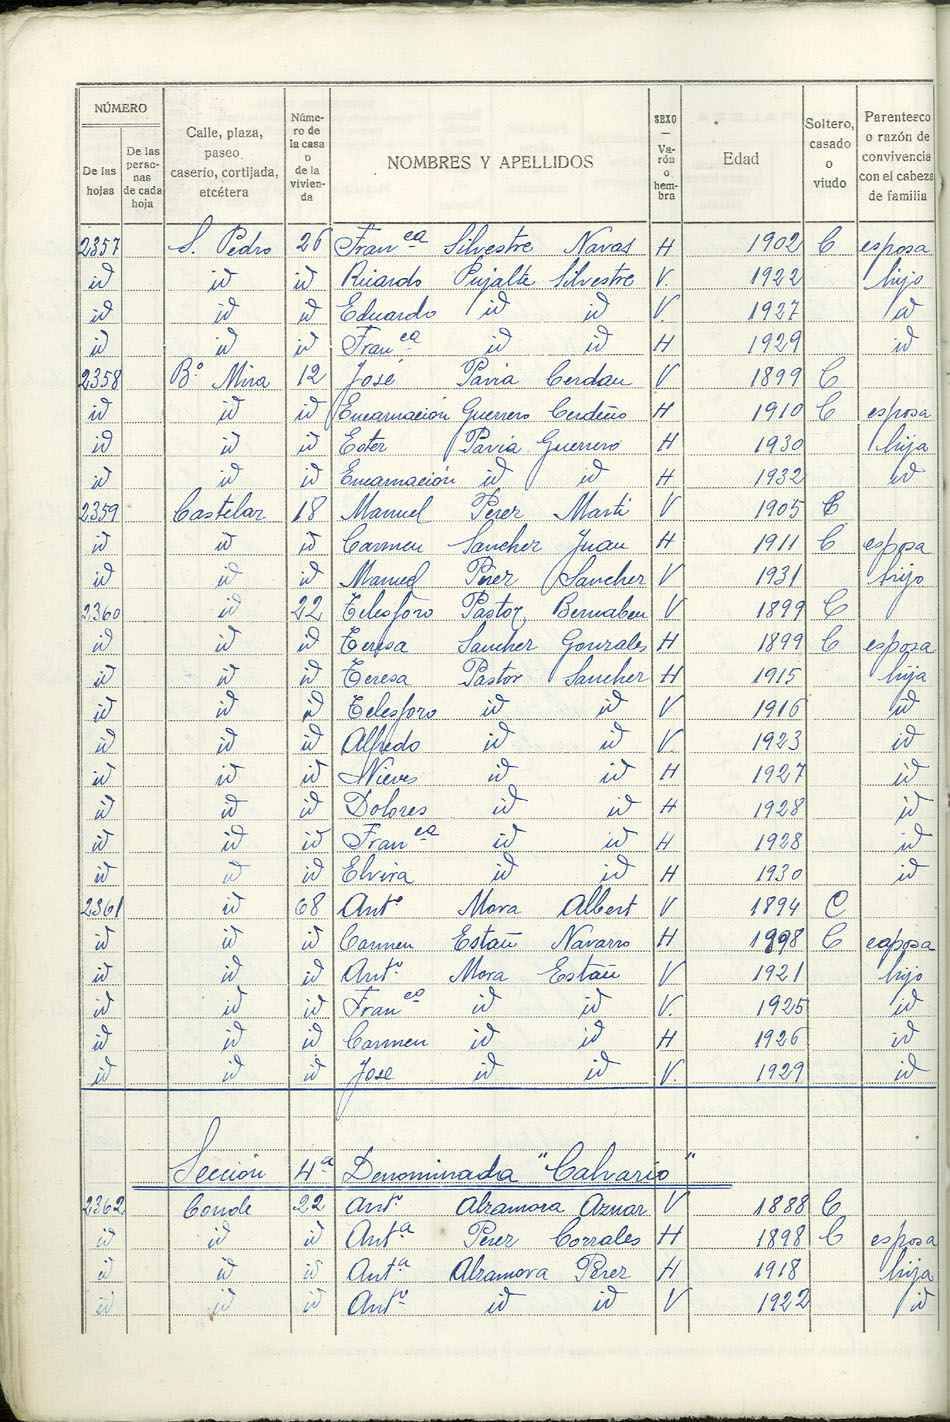 NÚMERO
De las hojas
De las perso- nas de cada hoja
Calle, plaza, paseo caserío, cortijada, etcétera
Núme- ro de la casa o de la vivien- da
NOMBRES Y APELLIDOS
SEXO — Va- rón o hem- bra
Edad
Soltero, casado o viudo
Parentesco o razón de convivencia con el cabeza de familia
2357 S. Pedro 26 Fran.ca Silvestre Navas H 1902 C esposa
id id id Ricardo Pujalte Silvestre V. 1922 hijo
id id id Eduardo id id V 1927 id
id id id Fran.ca id id H 1929 id
2358 Bº Mira 12 José Pavia Cerdan V 1899 C
id id id Encarnación Guerrero Cerdeño H 1910 C esposa
id id id Ester Pavia Guerrero H 1930 hija
id id id Encarnación id id H 1932 id
2359 Castelar 18 Manuel Perez Marti V 1905 C
id id id Carmen Sanchez Juan H 1911 C esposa
id id id Manuel Perez Sanchez V 1931 hijo
2360 id 22 Telesforo Pastor Bernabeu V 1899 C
id id id Teresa Sanchez Gonzales H 1899 C esposa
id id id Teresa Pastor Sanchez H 1915 hija
id id id Telesforo id id V 1916 id
id id id Alfredo id id V. 1923 id
id id id Nieves id id H 1927 id
id id id Dolores id id H 1928 id
id id id Fran.ca id id H 1928 id
id id id Elvira id id H 1930 id
2361 id 68 Antº Mora Albert V 1894 C
id id id Carmen Estañ Navarro H 1898 C esposa
id id id Antº Mora Estañ V 1921 hijo
id id id Fran.co id id V. 1925 id
id id id Carmen id id H 1926 id
id id id José id id V. 1929 id
Sección 4ª Denominada "Calvario"
2362 Conde 22 Antº Alzamora Aznar V 1888 C
id id id Antª Perez Corrales H 1898 C esposa
id id id Antª Alzamora Perez H 1918 hija
id id id Antº id id V 1922 id